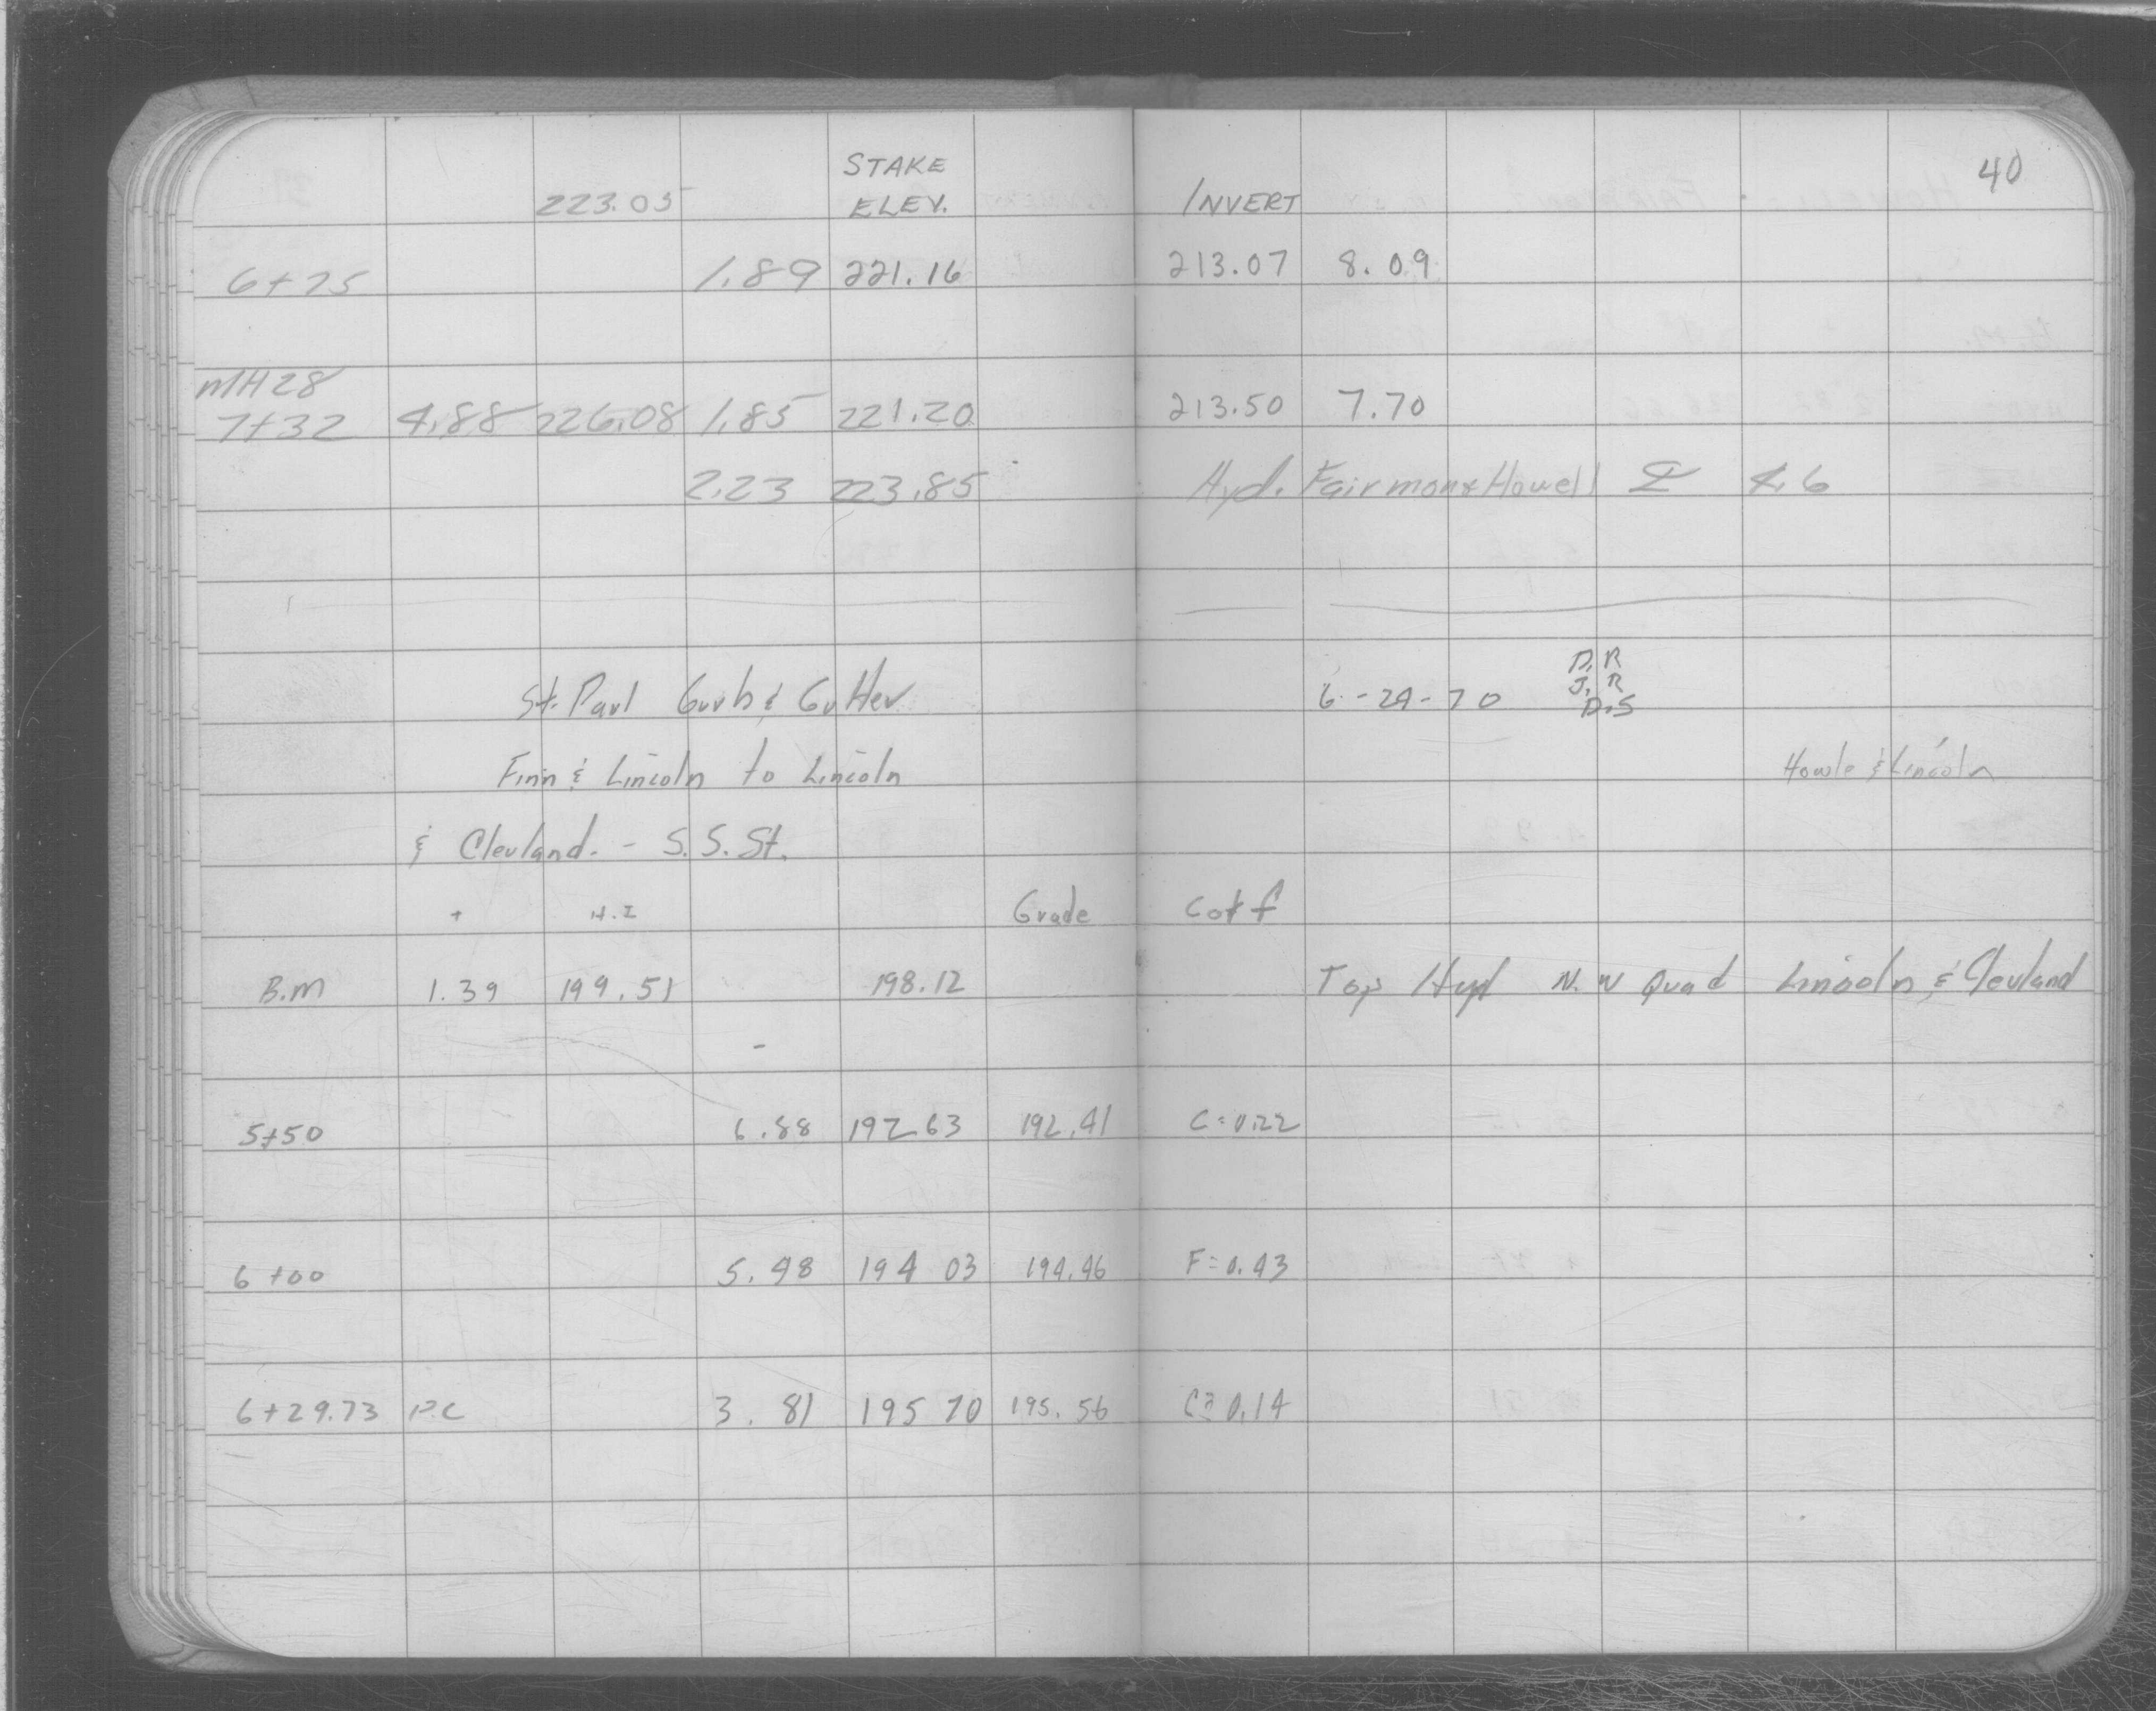 40
STAKE
223.05 ELEV. INVERT
6+25 1.89 221.16 213.07 8.09
MH 28
7+32 4.88 226.08 1.85 221.20 213.50 7.70
2.23 223.85 Hyd. Fairmont Howell 4.6
D.R
J.R
St. Paul Curb & Gutter 6-24-70 D.S
Finn & Lincoln to Lincoln Howle & Lincoln
& Clevland. - S. S. St.
+ H.I Grade C or f
B.M 1.39 199.51 198.12 Top Hyd N.W Quad Lincoln & Clevland
-
5+50 6.88 192 63 192.41 C=0.22
6+00 5.48 194 03 194.46 F=0.43
6+29.73 P.C 3.81 195 70 195.56 C=0.14